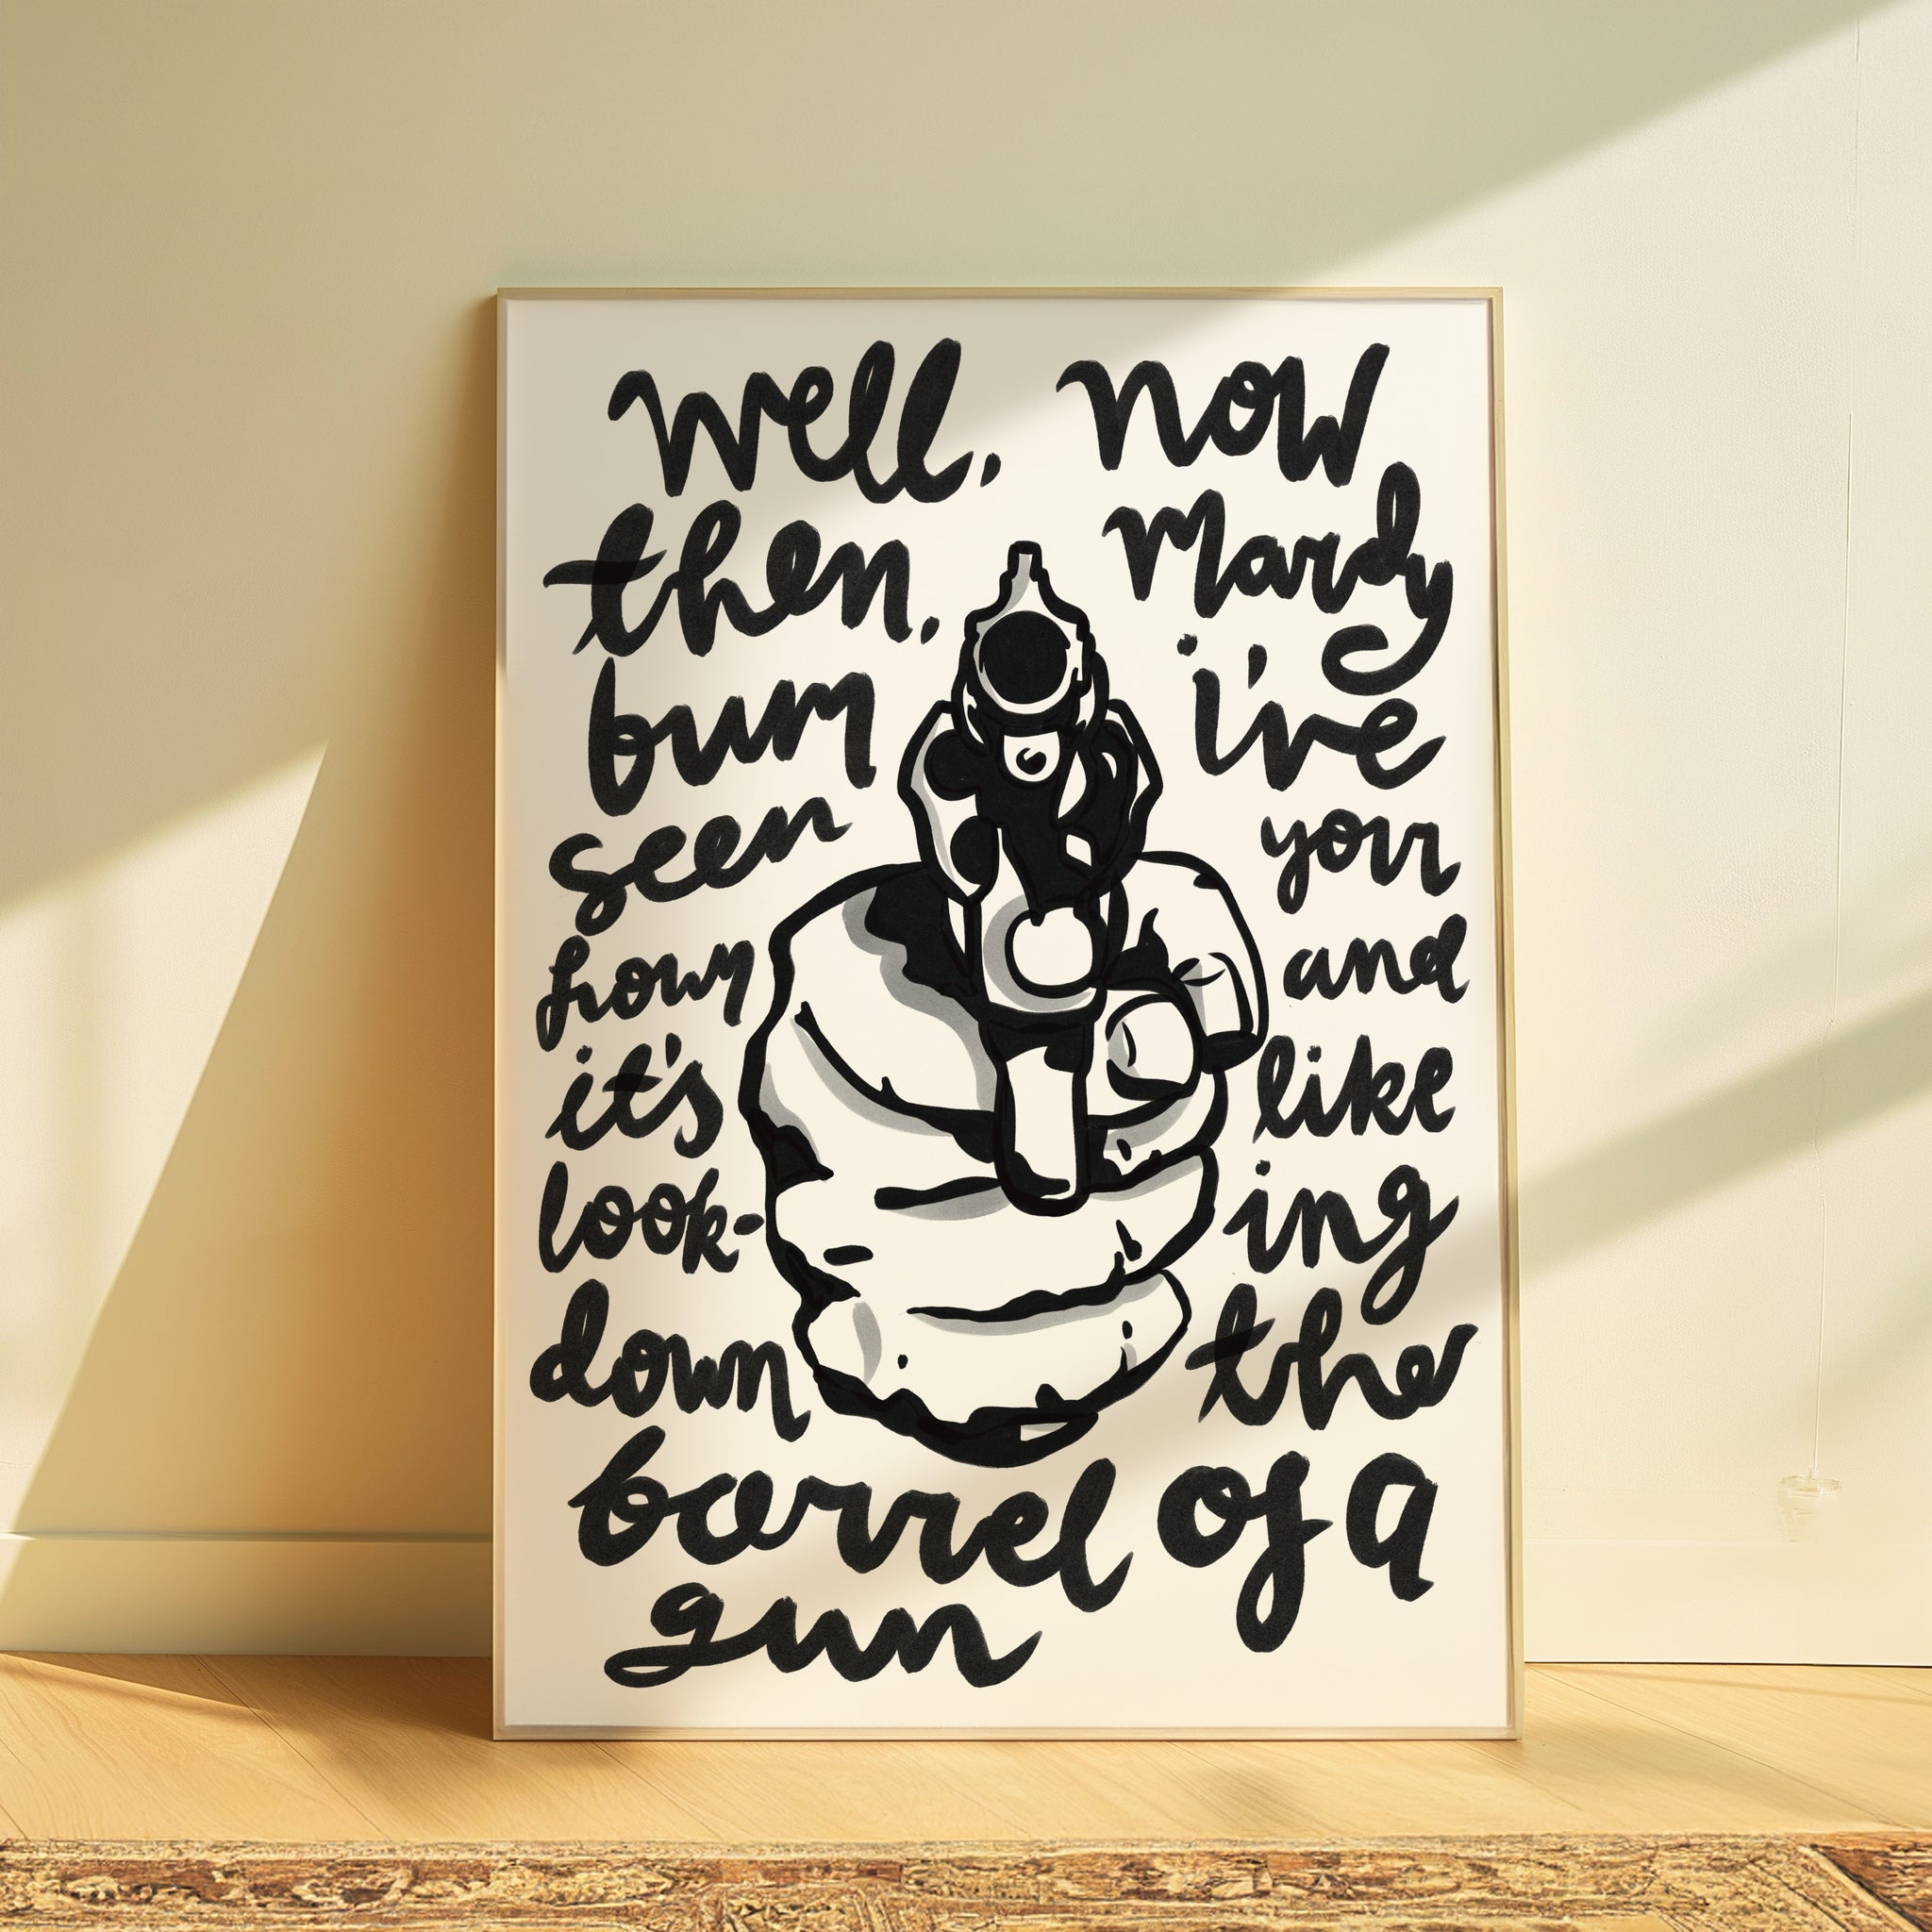 well, now
then, Mardy
bum i've
seen your
frown and
it's like
look- ing
down the
barrel of a
gun